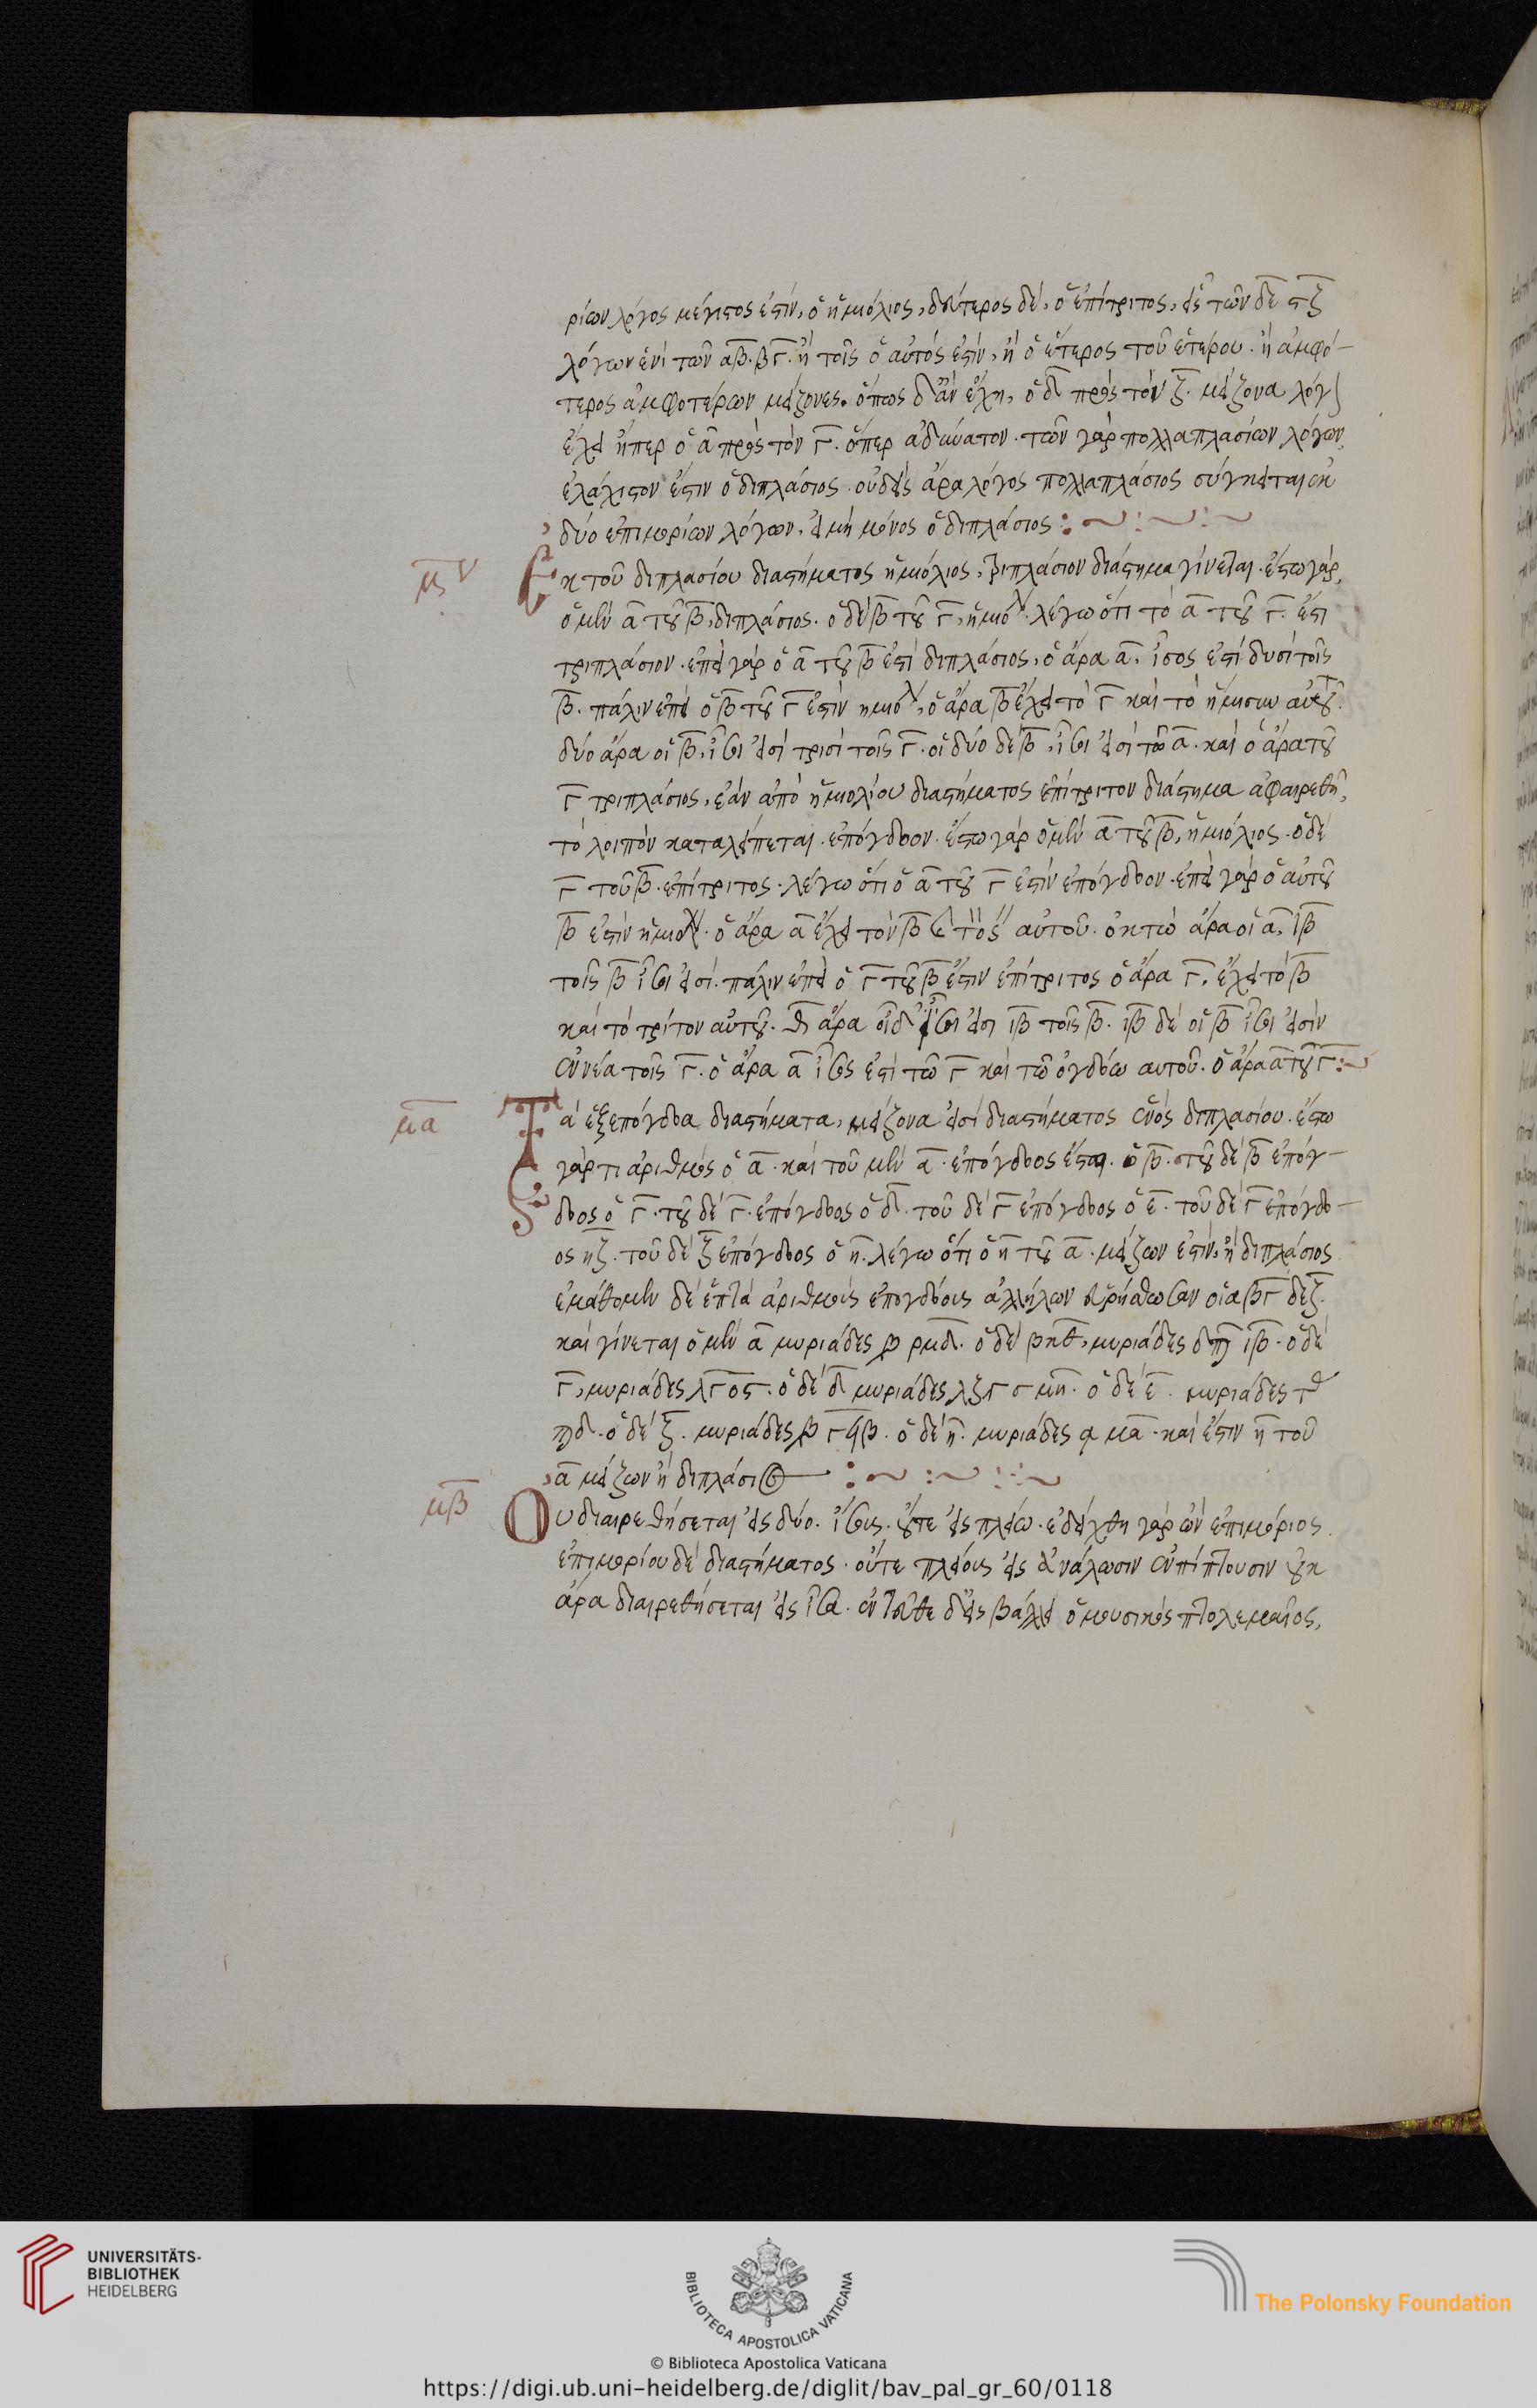 ρίων λόγος μέγιστός ἐστιν, ὁ ἡμιόλιος, δεύτερος δὲ, ὁ ἐπίτριτος, εἷς τῶν δε ϛζ
λόγων ἑνὶ τῶν αβ. βγ. ἢ τοῖς ὁ αὐτός ἐστιν, ἢ ὁ ἕτερος τοῦ ἑτέρου. ἢ ἀμφό-
τερος ἀμφοτέρων μείζονες. ὅπως δ' ἂν ἔχη, ὁ δ πρὸς τὸν ζ. μείζονα λόγ
ἔχει ἤπερ ὁ α πρὸς τὸν γ. ὅπερ ἀδύνατον. τῶν γὰρ πολλαπλασίων λόγων,
ἐλάχιστον ἔστιν ὁ διπλάσιος. οὐδεὶς ἄρα λόγος πολλαπλάσιος σύγκειται ἐκ
δύο ἐπιμορίων λόγων, εἰ μὴ μόνος ὁ διπλάσιος :~:~:~
μ
Ἐκ τοῦ διπλασίου διαστήματος ἡμιόλιος, τριπλάσιον διάστημα γίνεται. ἔστω γὰρ,
ὁ μὲν α τοῦ β, διπλάσιος. ὁ δὲ β τοῦ γ, ἡμιόλ. λέγω ὅτι τὸ α τοῦ γ. ἐστι
τριπλάσιον. ἐπεὶ γὰρ ὁ α τοῦ β ἐστὶ διπλάσιος, ὁ ἄρα α. ἴσος ἐστὶ δυσὶ τοῖς
β. πάλιν ἐπεὶ ὁ β τοῦ γ ἐστὶν ἡμιόλ, ὁ ἄρα β ἔχει τὸ γ καὶ τὸ ἥμισυ αὐτοῦ.
δύο ἄρα οἱ β, ἴσοι εἰσὶ τρισὶ τοῖς γ. οἱ δύο δὲ β, ἴσοι εἰσὶ τῶ α. καὶ ὁ ἄρα τοῦ
γ τριπλάσιος, ἐὰν ἀπὸ ἡμιολίου διαστήματος ἐπίτριτον διάστημα ἀφαιρεθῆ,
τὸ λοιπὸν καταλείπεται. ἐπόγδοον. ἔστω γὰρ ὁ μὲν α τοῦ β, ἡμιόλιος. ὁ δὲ
γ τοῦ β. ἐπίτριτος. λέγω ὅτι ὁ α τοῦ γ ἐστὶν ἐπόγδοον. ἐπεὶ γὰρ ὁ αὐτοῦ
β ἐστὶν ἡμιόλ. ὁ ἄρα α ἔχει τὸν β αὐτοῦ. ὀκτὼ ἄρα οἱ α, ιβ
τοῖς β ἴσοι εἰσί. πάλιν ἐπεὶ ὁ γ τοῦ β ἔστιν ἐπίτριτος ὁ ἄρα γ. ἔχει τὸ β
καὶ τὸ τρίτον αὐτοῦ. θ ἄρα οἱ ἴσοι εἰσι ιβ τοῖς β. ιβ δὲ οἱ β ἴσοι εἰσὶν
ἐννέα τοῖς γ. ὁ ἄρα α ἴσος ἐστὶ τῶ γ καὶ τῶ ὀγδόω αὐτοῦ. ὁ ἄρα α τοῦ γ :~
μα
Τὰ ἓξ ἐπόγδοα διαστήματα, μείζονα εἰσὶ διαστήματος ἑνὸς διπλασίου. ἔστω
γάρ τι ἀριθμὸς ὁ α. καὶ τοῦ μὲν α. ἐπόγδοος ἔσται. ὁ β. τοῦ δὲ β ἐπόγ-
δοος ὁ γ. τοῦ δὲ γ. ἐπόγδοος ὁ δ. τοῦ δὲ γ ἐπόγδοος ὁ ε. τοῦ δὲ γ ἐπόγδο-
ος ηζ. τοῦ δὲ ζ ἐπόγδοος ὁ η. λέγω ὅτι ὁ η τοῦ α. μείζων ἐστὶν, ἢ διπλάσιος
ἐμάθομεν δὲ ἑπτὰ ἀριθμοὺς ἐπογδόοις ἀλλήλων εὑρήσθωσαν οἱ αβγ δεζ.
καὶ γίνεται ὁ μὲν α μυριάδες β ρμδ. ὁ δὲ βκθ, μυριάδες ιβ. ὁ δὲ
γ, μυριάδες λγ οϛ. ὁ δὲ δ μυριάδες λξγ σμη. ὁ δὲ ε. μυριάδες
πδ. ὁ δὲ ζ. μυριάδες β γϟβ. ὁ δὲ η. μυριάδες φ μα. καὶ ἔστιν η τοῦ
α μείζων ἢ διπλάσιος :~:~:~
μβ
Οὐ διαιρεθήσεται εἰς δύο. ἴσους. οὔτε εἰς πλείω. ἐδείχθη γὰρ ὢν ἐπιμόριος.
ἐπιμορίου δὲ διαστήματος. οὔτε πλείους εἰς ἀνάλωσιν ἐνπίπτουσιν οὐκ
ἄρα διαιρεθήσεται εἰς ἴσα. ἐντεῦθε δ' εἰσβάλλει ὁ μουσικὸς πτολεμαῖος,
UNIVERSITÄTS-
BIBLIOTHEK
HEIDELBERG
BIBLIOTECA APOSTOLICA VATICANA
The Polonsky Foundation
© Biblioteca Apostolica Vaticana
https://digi.ub.uni-heidelberg.de/diglit/bav_pal_gr_60/0118